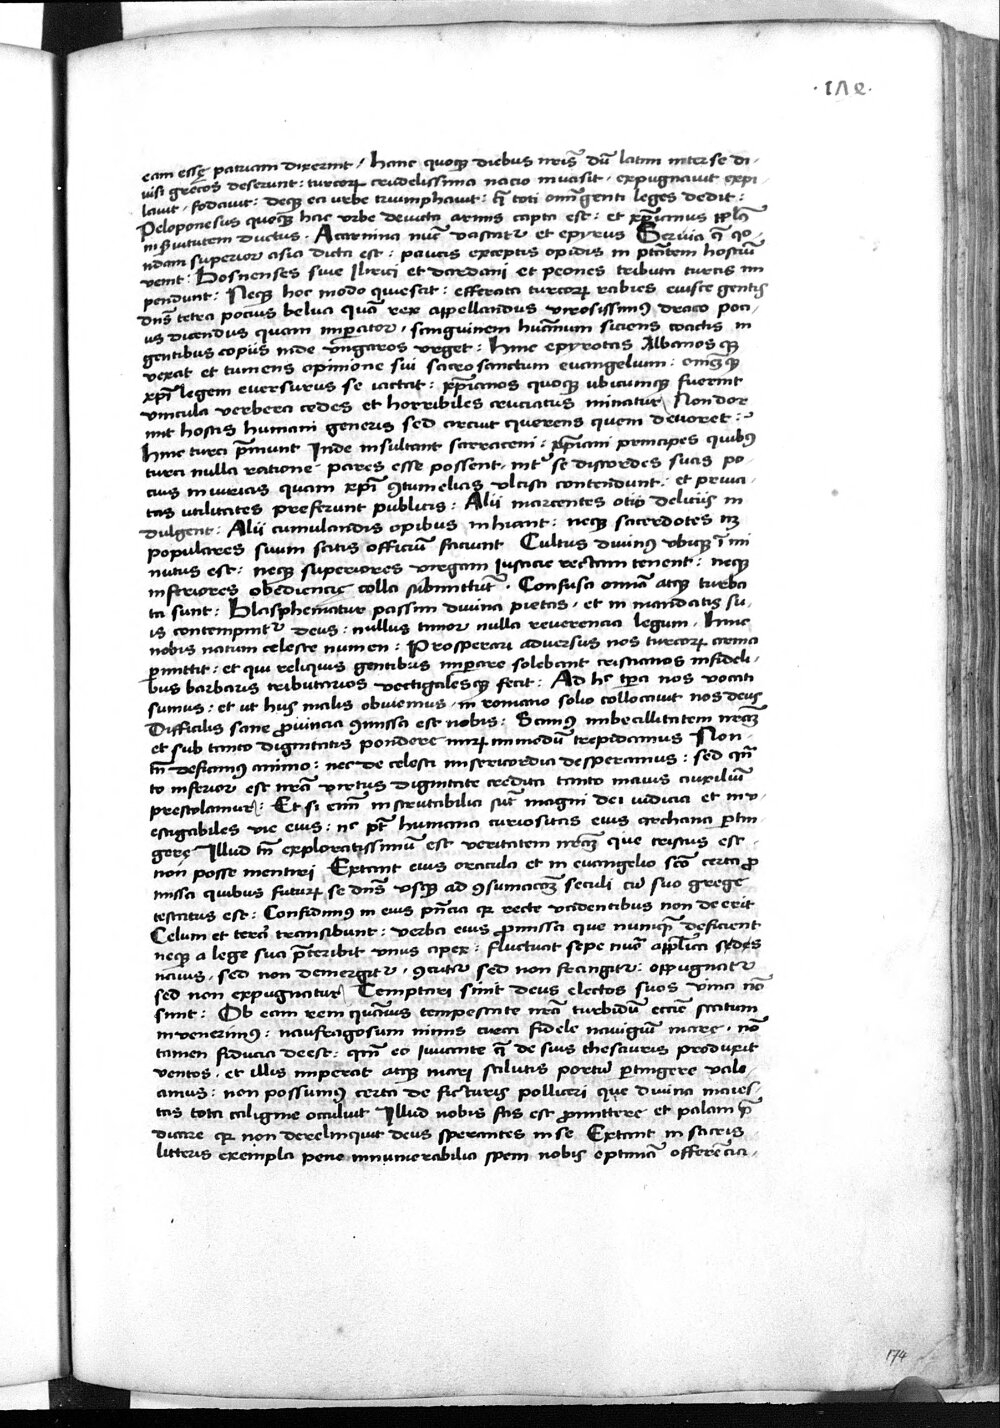 ·172·
eam esse patriam dixerint / hanc quoqꝫ diebus nr̄is dū latini inter se di-
uisi grecos deserunt : turcoꝝ crudelissima nacio inuasit · expugnauit expi
lauit · fodauit : deqꝫ ea urbe triumphauit : q̄ toti om̄i genti leges dedit :
Peloponesus quoqꝫ hac vrbe deuicta armis capta est : et xp̄ianus ppl̄s
in s̄uitutem ductus · Acarnina nūc vastatᷣ et epyrus Seruia q̄ qō-
ndam superior asia dicta est : paucis exceptis opidis in ptātem hostiū
venit : Bosnenses siue Ilirici et dardani et peones tributa turcis im
pendunt : Neqꝫ hoc modo quiescit : efferata turcoꝝ rabies eiusce gentis
dn̄s tetra pocius belua quā rex appellandus virosissimꝰ draco poci-
us dicendus quam imꝑator · sanguinem humanum siciens coactis in
gentibus copiis inde vngaros vrget : hinc epyrotas Albanos qꝫ
vexat et tumens opinione sui sacrosanctum euangelium : omēqꝫ
xp̄i legem euersurus se iactat : xp̄ianos quoqꝫ ubicumqꝫ fuerint
vincula verbera cedes et horribiles cruciatus minatur Non dor
mit hostis humani generis sed circuit querens quem deuoret :
hinc turci p̄munt Inde insultant sarraceni : xp̄iani principes quibꝰ
turci nulla ratione pares esse possent · intᷣ se discordes suas po
cius iniurias quam xp̄i ꝯtumelias vlcisci contendunt : et priua
tas utilitates preferunt publicis : Alii marcentes otio deliciis in
dulgent : Alii cumulandis opibus inhiant : neqꝫ sacerdotes neqꝫ
populares suum satis officiū faciunt Cultus diuinꝰ ubiqꝫ im mi
nutus est : neqꝫ superiores virgam iusticie rectam tenent : neqꝫ
inferiores obediencie colla submittūt · Confusa omnia atqꝫ turba
ta sunt : Blasphematur passim diuina pietas · et in mandatis su-
is contempnitᷣ deus : nullus timor nulla reuerencia legum · hinc
nobis natum celeste numen : Prosperari aduersus nos turcoꝝ arma
ꝑmittit : et qui reliquis gentibus imꝑare solebant cristianos infideli-
bus barbaris tributarios vectigalesqꝫ fecit : Ad hec tp̄ra nos vocati
sumus : et ut hijs malis obuiemus · in romano solio collocauit nos deus
Difficilis sane ꝓuincia ꝯmissa est nobis : Scimꝰ imbecillitatem nr̄am
et sub tanto dignitatis pondere miꝝ immodū trepidamus Non-
tn̄ deficimꝰ animo : nec de celesti misericordia desperamus : sed qn̄
to inferior est nr̄a virtus dignitate credita tanto maius auxiliū
prestolamur : Et si enim inscrutabilia sūt magni dei iudicia et inv-
estigabiles vie eius : nec pt̄ humana curiositas eius archana ꝑtin
gere Illud tn̄ exploratissimū est veritatem nr̄am que cristus est
non posse mentiri Extant eius oracula et in euangelio sc̄o certa ꝓ
missa quibus futuꝝ se dn̄s vsqꝫ ad ꝯsumacōꝫ seculi cū suo grege
testatus est : Confidimꝰ in eius pn̄cia qꝛ recte vadentibus non de erit
Celum et terra transibunt : verba eius ꝓmissa que nunqꝫ deficient
neqꝫ a lege sua p̄teribit vnus apex : fluctuat sepe nūc applica sedes
nauis · sed non demergitᷣ · ꝯcutitᷣ sed non frangitᷣ : oppugnatᷣ
sed non expugnatur Temptari sinit deus electos suos vinci nō
sinit : Ob eam rem quāuis tempestate nr̄a turbidū ecc̄ie statum
inuenerimꝰ : naufragosum nimis curra fidele nauigiū mare · nō
tamen fiducia deest : qm̄ eo iuuante q̄ de suis thesauris produxit
ventos · et illis imperat atqꝫ mari salutis portū ꝑtingere vale-
amus : non possumꝰ certa de futuris polliceri que diuina maies-
tas tota caligine occuluit Illud nobis fas est ꝓmittere et palam p̄
dicare qꝛ non derelinquit deus sperantes in se Extant in sacris
litteris exempla pene innumerabilia spem nobis optimā offerēcia ·
174